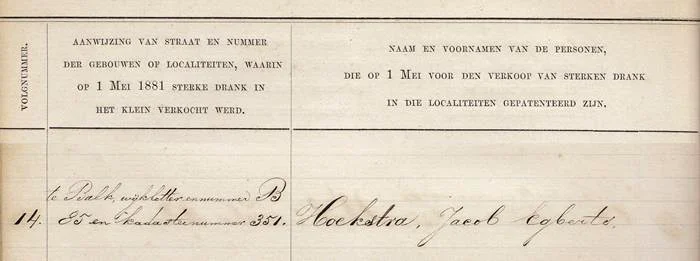 VOLGNUMMER.
AANWIJZING VAN STRAAT EN NUMMER
DER GEBOUWEN OF LOCALITEITEN, WAARIN
OP 1 MEI 1881 STERKE DRANK IN
HET KLEIN VERKOCHT WERD.
NAAM EN VOORNAMEN VAN DE PERSONEN,
DIE OP 1 MEI VOOR DEN VERKOOP VAN STERKEN DRANK
IN DIE LOCALITEITEN GEPATENTEERD ZIJN.
te Balk, wijkletter en nummer B
14. 85 en kadasternummer 351. Hoekstra, Jacob Egberts.